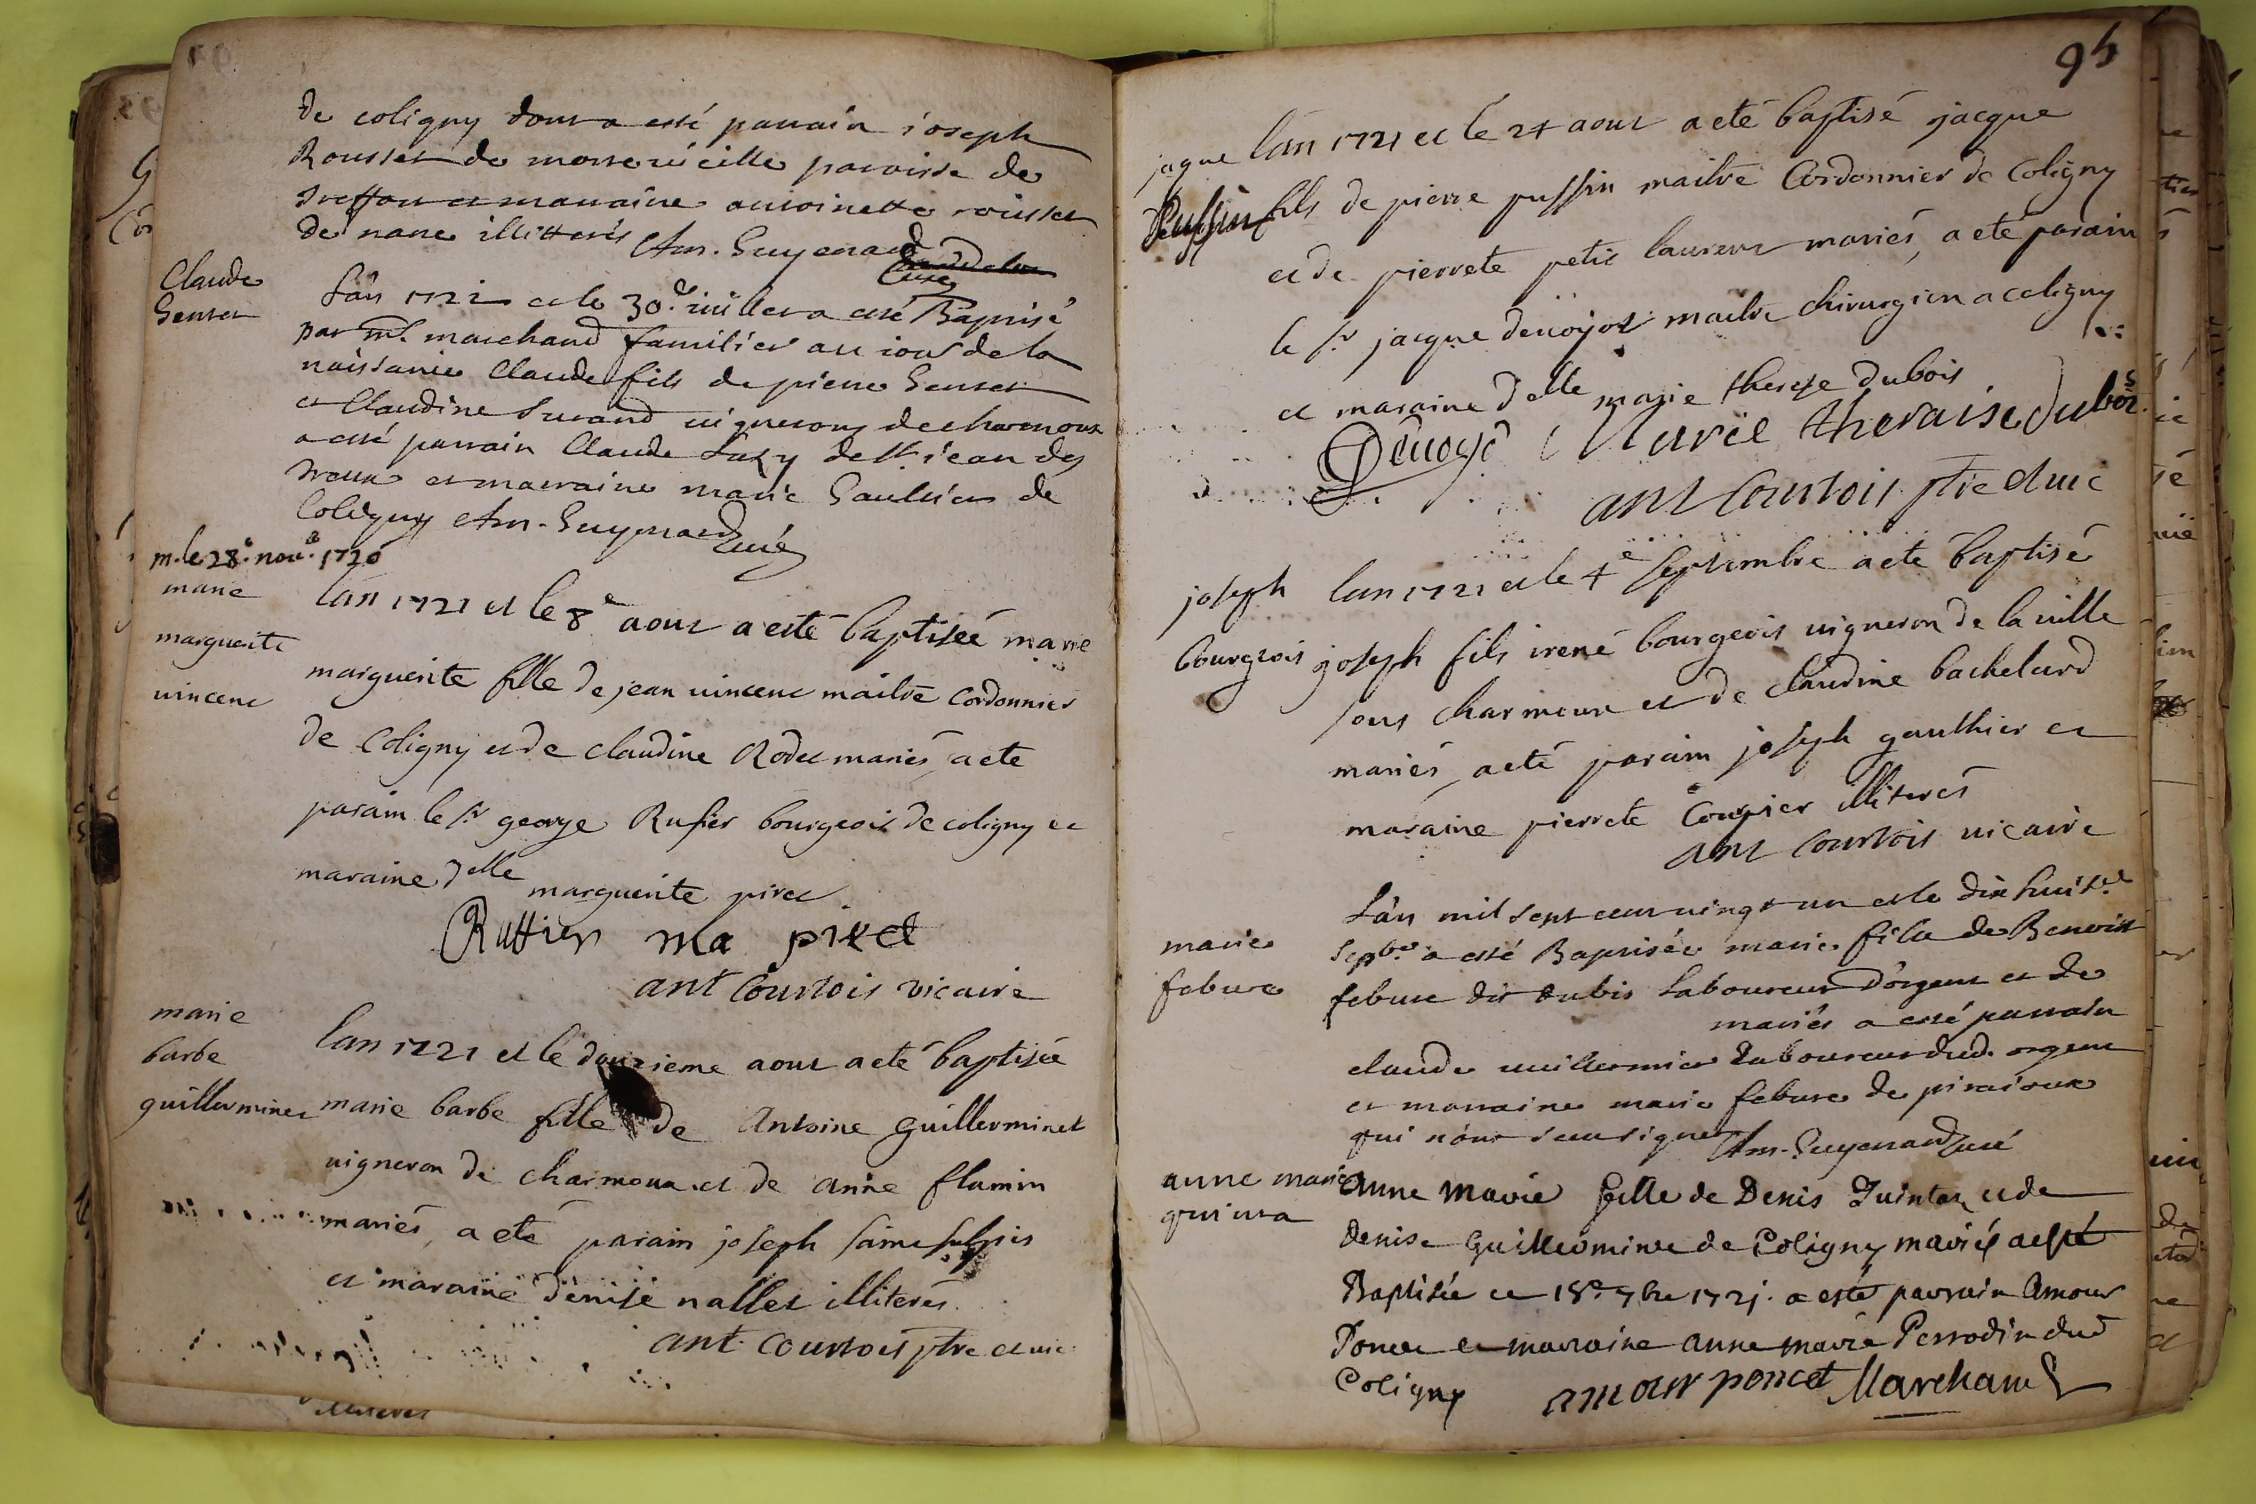 de coligny dont a esté parrain ioseph
Rousset de paroisse de
Treffort et marraine antoinette roisset
de nanc illitterés Am. Guyenard
Curé
Claude
Genset
L'an 1721 et le 30e iüillet a esté Baptisé
par mre. marchand familier au iour de la
naissance Claude fils de pierre Genset
et Claudine Durand uignerons de charmoux
a esté parrain Claude Luzy de st. iean des
treux et marraine marie Gaultier de
Coligny Am. Guyenard curé
m. le 28e. nov.e 1720
marie
marguerite
uincent
lan 1721 et le 8e aout a esté baptiseé marie
marguerite fille de jean uincent maitre cordonnier
de Coligny et de claudine Rodet mariés, a ete
parain le sr george Rufier bourgeois de coligny et
maraine delle marguerite piret
Ruffier ma piret
ant Courtois vicaire
marie
barbe
guillerminet
lan 1721 et le douzieme aout a eté baptisée
marie barbe fille de Antoine guillerminet
uigneron de charmoux et de anne flamin
mariés, a eté parain joseph
et maraine denise nallet illiterés
ant Courtois ptre et uic
95
jaque
Puffin
lan 1721 et le 24 aout a eté baptisé jacque
fils de pierre puffin maitre Cordonnier de Coligny
et de pierrete petit laurent mariés, a eté parain
le sr jacque deuoyot maitre chirurgien a coligny
et maraine delle marie therese dubois
Deuoyo Mariee theraise dubois
ant Courtois ptre et uic
joseph
bourgeois
lan 1721 et le 4e septembre a eté baptisé
joseph fils irené bourgeois uigneron de la uille
sous charmoux et de claudine bachelard
mariés, a eté parain joseph gauthier et
maraine pierrete Coupier illiterés
ant Courtois uicaire
marie
febure
L'an mil sept cent uingt un et le dix huit.e
Sepbre. a esté Baptisée marie fille de Benoist
febure dit dubis Laboureur d'orgent et de
mariés a esté parrain
claude uuillermier Laboureur dud. orgent
et marraine marie febure de piraioux
qui n'ont sceu signer Am. Guyenard curé
anne marie
quinta
Anne Marie fille de Denis Quinta et de
Denise Guillerminet de Coligny mariés a esté
Baptisée ce 18e 7bre 1721. a esté parrain Amour
Poncet et marraine anne marie Perrodin dud
Coligny amour poncet Marchand